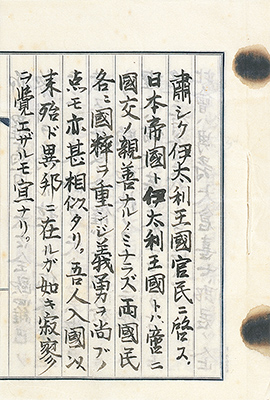 肅シク伊太利王國官民ニ啓ス、
日本帝國ト伊太利王國トハ啻ニ
國交ノ親善ナルノミナラズ両國民
各〻國粹ヲ重ンジ義勇ヲ尚ブノ
点モ亦甚相似タリ。吾人入國以
来殆ド異邦ニ在ルガ如キ寂寥
ヲ覺エザルモ宜ナリ。